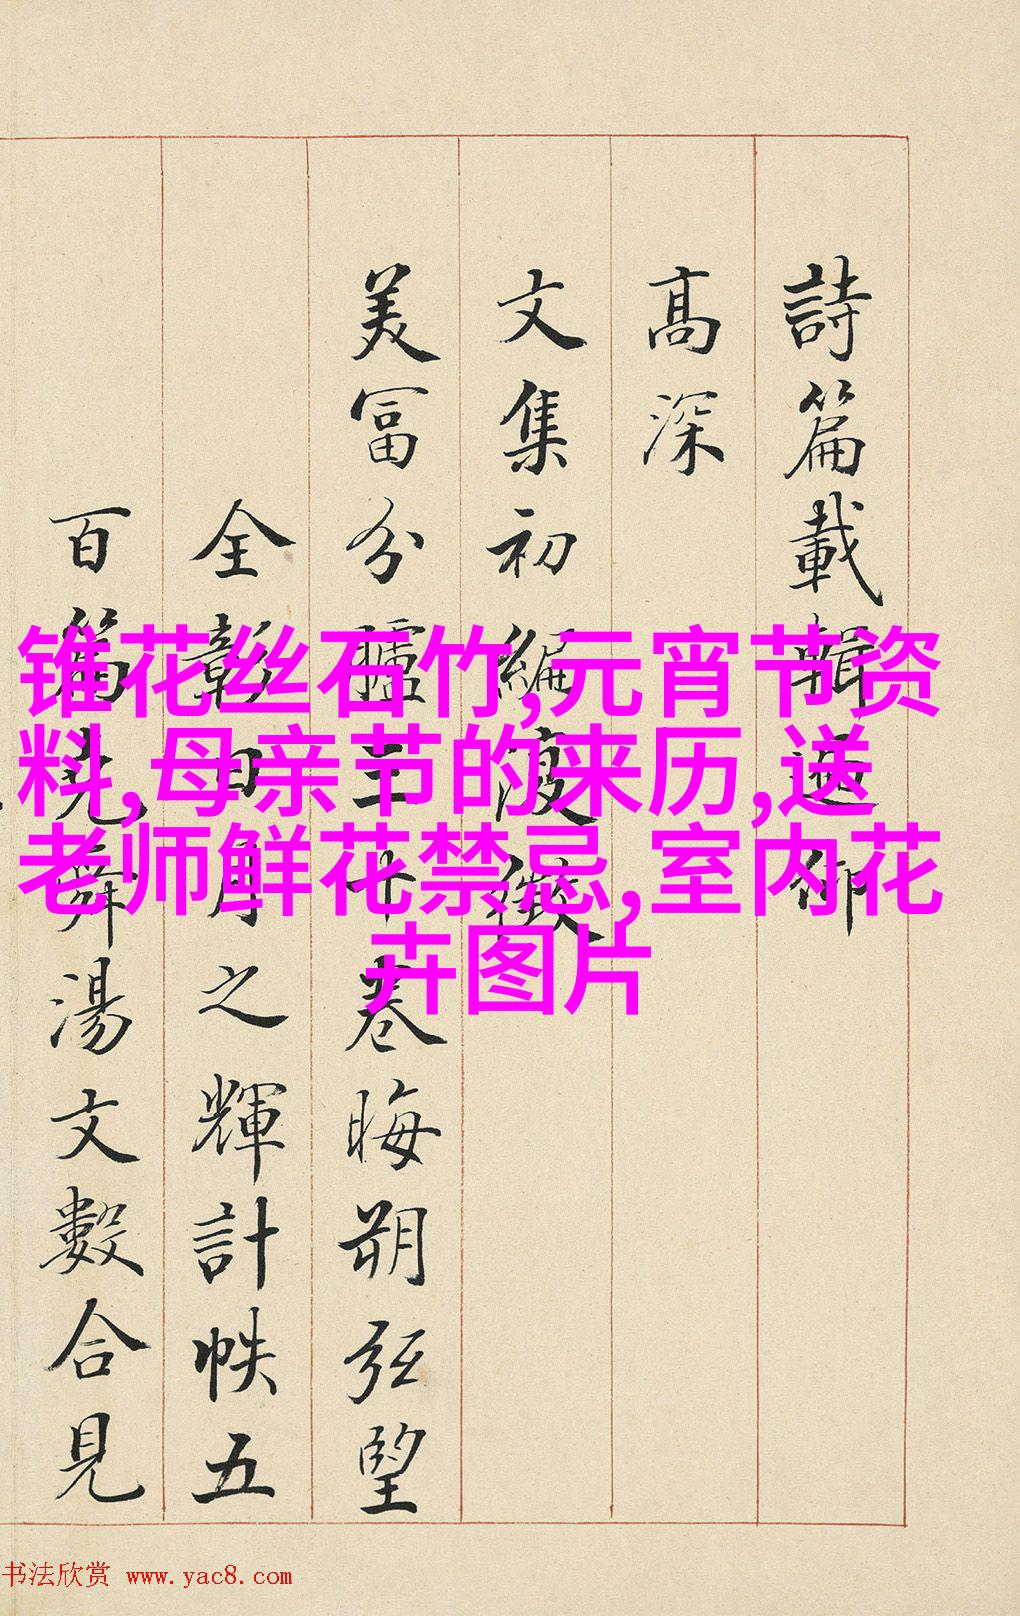 詩篇載輯還御
高深
文集初編復徵
美富分臚三十卷晦朔弦望
全彰日月之輝計帙五
百篇堯舜湯文數合見
锥花丝石竹,元宵节资
料,母亲节的来历,送
老师鲜花禁忌,室内花
卉图片
书法欣赏 www.yac8.com